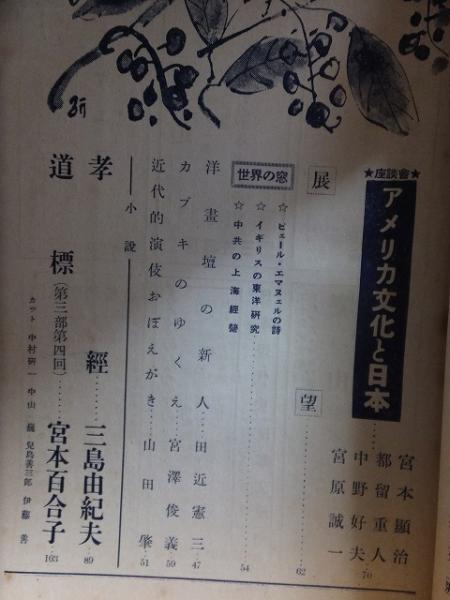 ★座談會★
アメリカ文化と日本
宮本顯治
都留重人
中野好夫
宮原誠一
70
展望
62
世界の窓
☆ ピエール・エマヌエルの詩
☆ イギリスの東洋研究
☆ 中共の上海經營
54
洋畫壇の新人 田近憲三 47
カブキのゆくえ 宮澤俊義 59
近代的演伎おぼえがき 山田肇 51
小說
孝經 三島由紀夫 89
道標(第三部第四回) 宮本百合子 163
カット 中村研一 中山巍 兒島善三郎 伊藤善